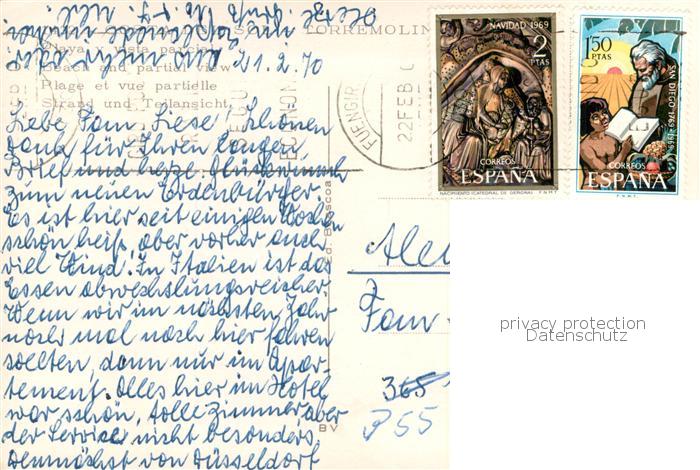 TORREMOLIN
Playa y vista parcial
Beach and partial view
Plage et vue partielle
Strand und Teilansicht
21.2.70
Liebe Fam Liese! Schönen
Dank für Ihren langen
Brief und herzl. Glückwunsch
zum neuen Erdenbürger.
Es ist hier seit einigen Wochen
schön heiß, aber vorher auch
viel Wind. In Italien ist das
Essen abwechslungsreicher.
Wenn wir im nächsten Jahr
noch mal nach hier fahren
sollten, dann nur im Apar-
tement. Alles hier im Hotel
war schön, tolle Zimmer, aber
der Service nicht besonders.
Demnächst von Düsseldorf
Herzl. Grüße
NAVIDAD 1969
2
PTAS
CORREOS
ESPAÑA
NACIMIENTO (CATEDRAL DE GERONA). F.N.M.T.
1'50
PTAS
SAN DIEGO 1769-1969
CORREOS
ESPAÑA
F.N.M.T.
FUENGIR
22 FEB
Fam
365
P 55
BV
privacy protection
Datenschutz